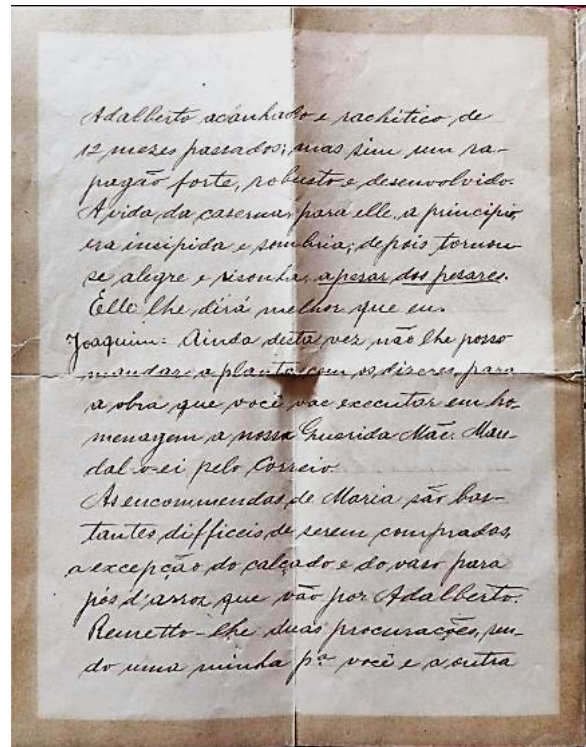 Adalberto acanhado e rachitico de
12 mezes passados; mas sim um ra-
pagão forte, robusto e desenvolvido.
A vida da caserna, para elle, a principio,
era insipida e sombria; depois tornou-
se alegre e risonha, apesar dos pesares.
Elle lhe dirá melhor que eu.
Joaquim: Ainda desta vez não lhe posso
mandar a planta, com os dizeres, para
a obra que você vae executar em ho-
menagem a nossa Querida Mãe. Man-
dal-o-ei pelo Correio.
As encommendas de Maria são bas-
tantes difficeis de serem compradas,
a excepção do calçado e do vaso para
pós d'arroz que vão por Adalberto.
Remetto-lhe duas procurações, sen-
do uma minha pª você e a outra